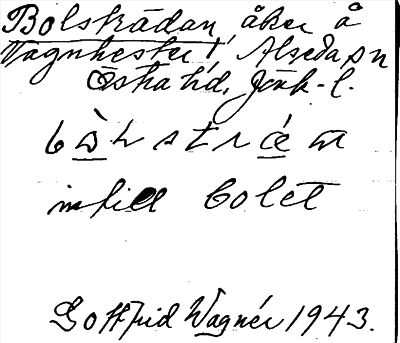 Bolsträdan, åker å
Vagnhester, Alseda sn
Östra hd, Jönk. l.
bòlstrǽan
intill bolet
Gottfrid Wagnér 1943.